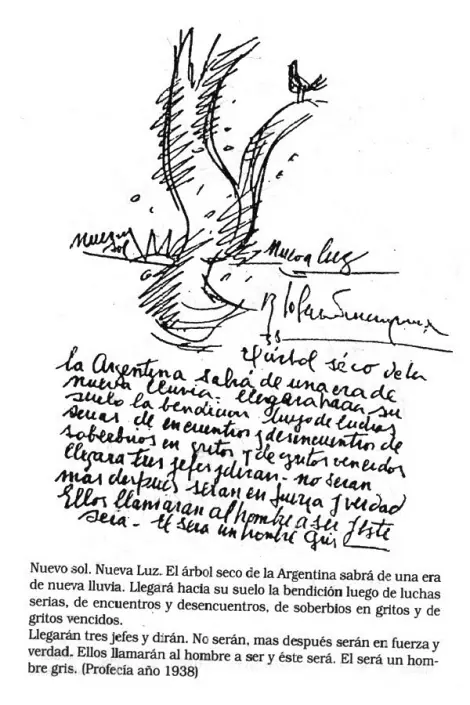 Nuevo
sol
Nueva luz
38
El árbol séco de la
la Argentina sabrá de una era de
nueva lluvia. llegará hacia su
suelo la bendicion luego de luchas
serias de encuentros y desencuentros de
soberbios en gritos y de gritos vencidos
llegara tres jefes y diran - no seran
mas después serán en fuerza y verdad
Ellos llamaran al hombre a ser y éste
será - El sera un hombre gris
Nuevo sol. Nueva Luz. El árbol seco de la Argentina sabrá de una era
de nueva lluvia. Llegará hacia su suelo la bendición luego de luchas
serias, de encuentros y desencuentros, de soberbios en gritos y de
gritos vencidos.
Llegarán tres jefes y dirán. No serán, mas después serán en fuerza y
verdad. Ellos llamarán al hombre a ser y éste será. El será un hom-
bre gris. (Profecía año 1938)